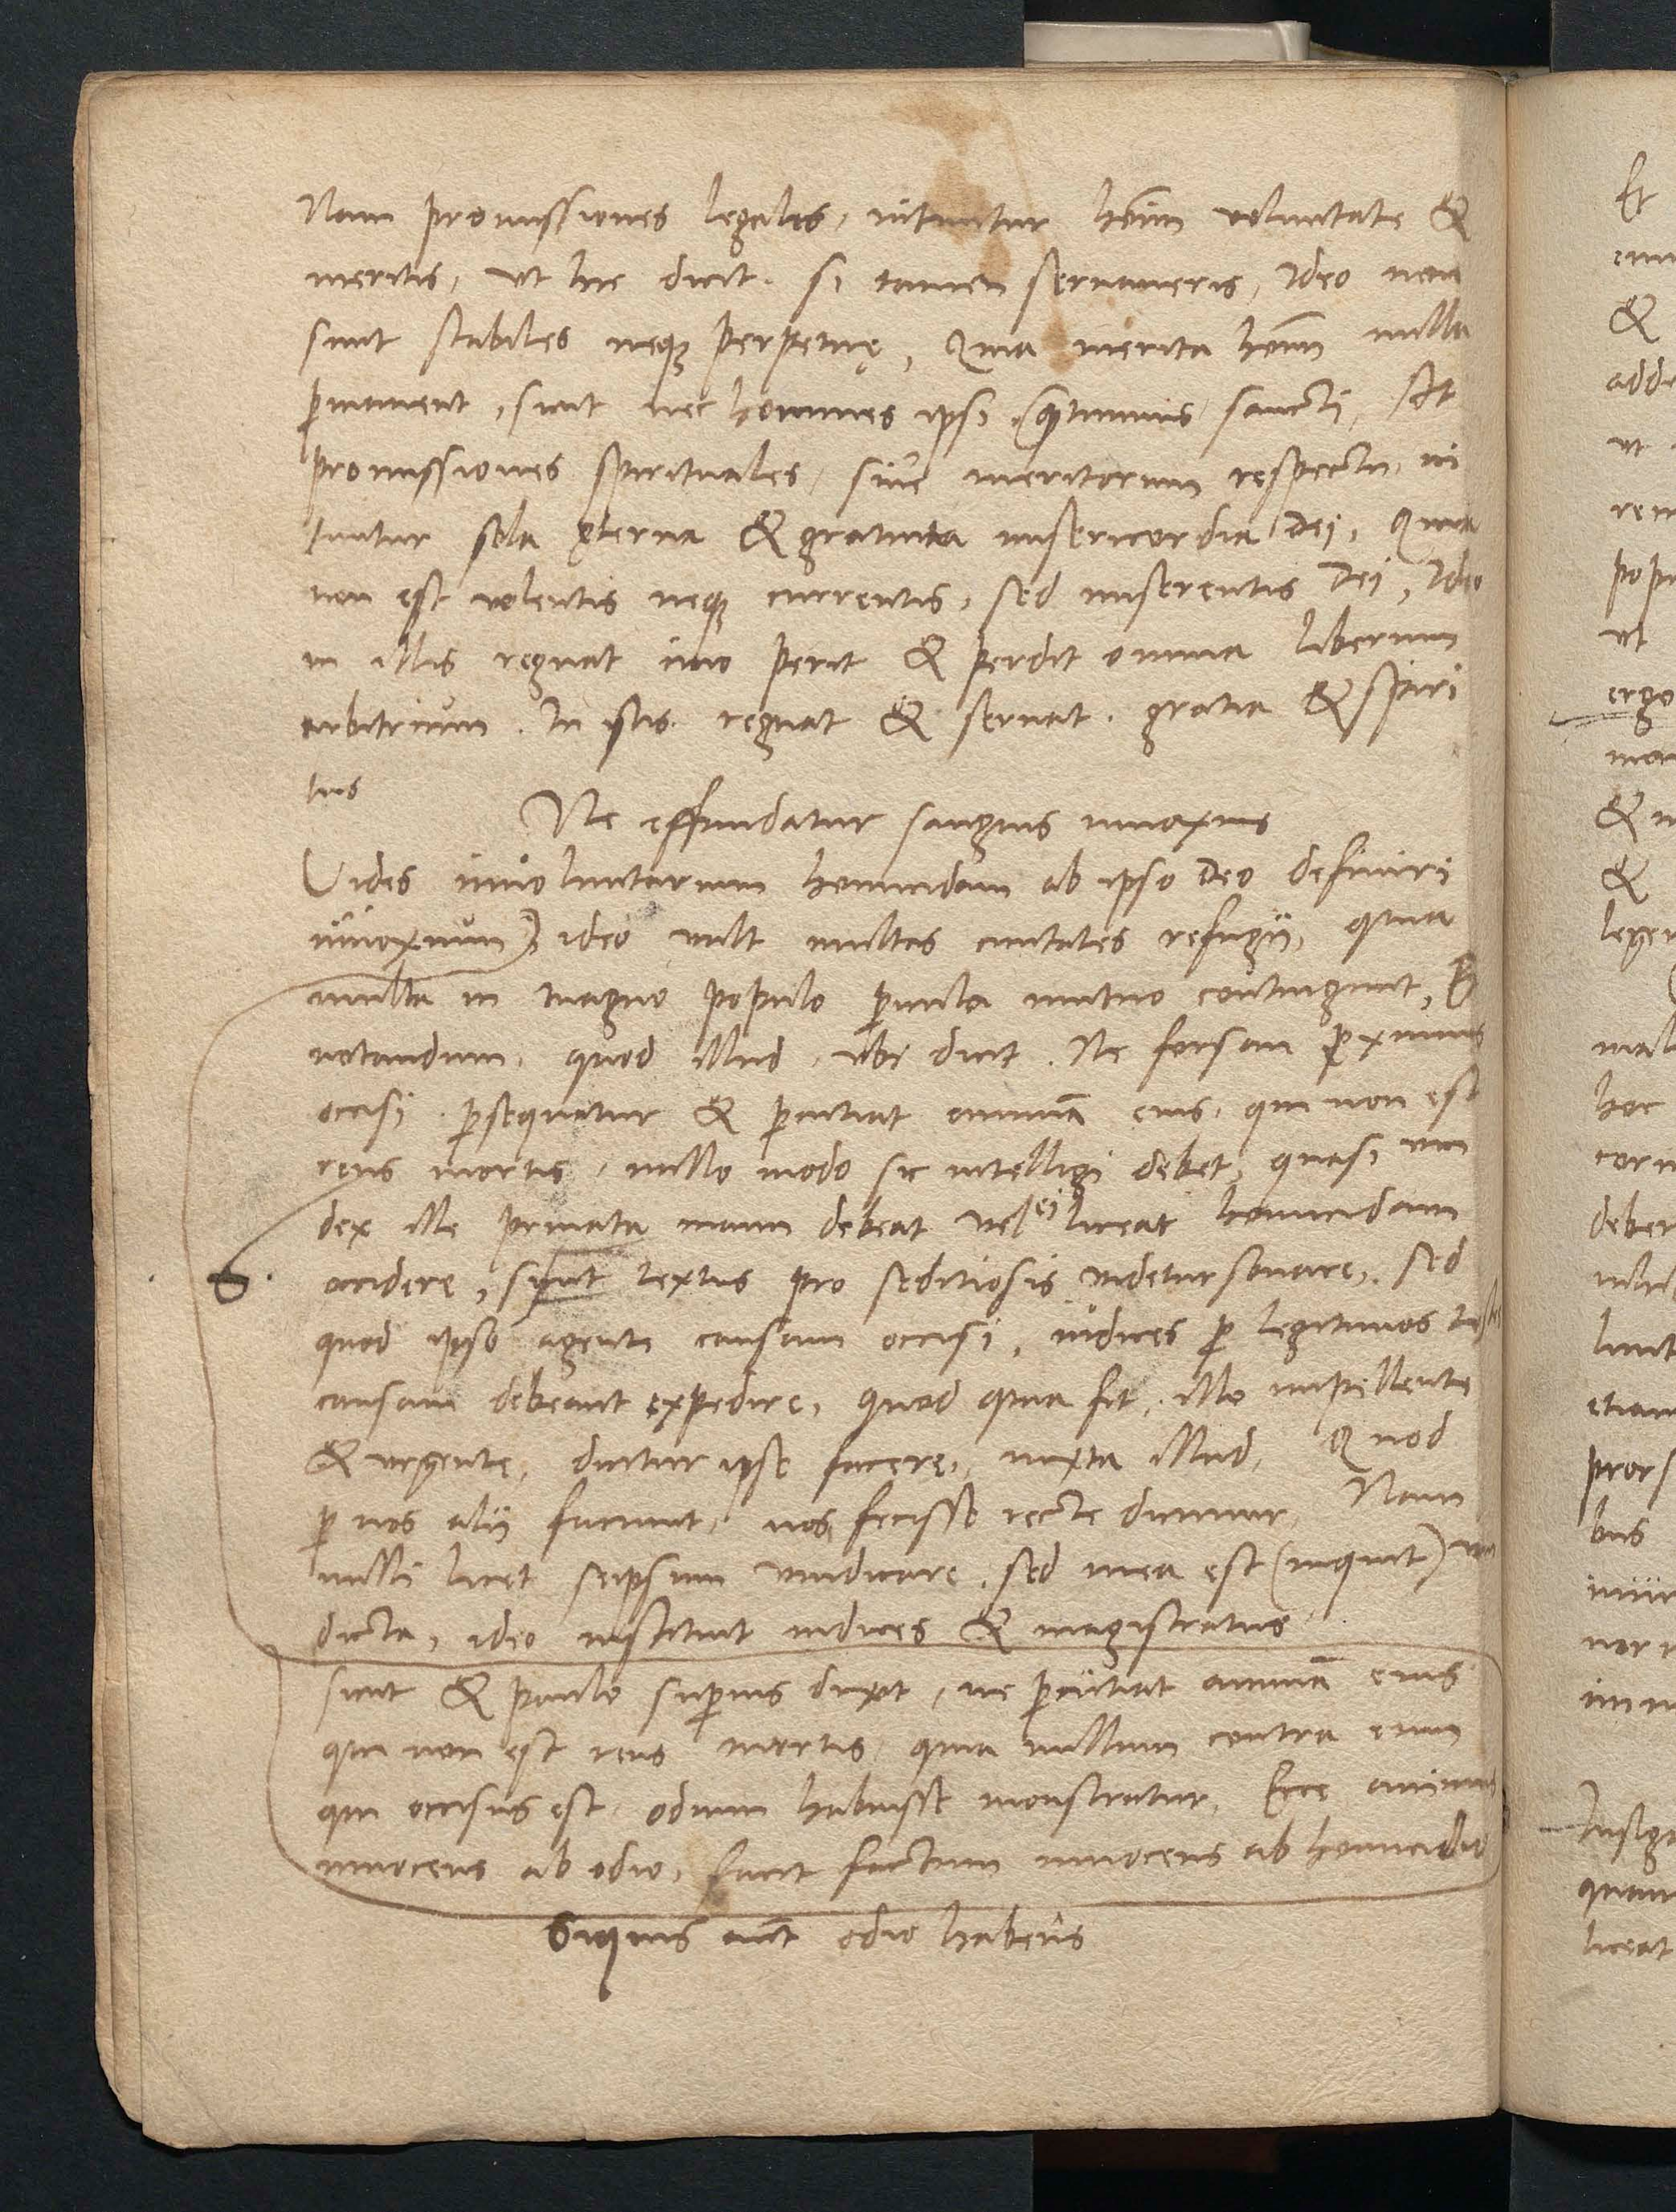 Nam promissiones legales, nituntur hoīm voluntate &
meritis, ut hic dicit. si tamen servaveris, Ideo non
sunt stabiles neqȝ perpetuę, Quia merita hoīm nulla
ꝑmanent, sicut nec homines ipsi sancti, At
promissiones spirituales, sine meritorum respectu, ni
tuntur sola ęterna & gratuita misericordia Dei, Quia
non est volentis neqȝ currentis, sed miserentis Dei, Ideo
in illis regnat imo perit & perdit omnia liberum
arbitrium. In istis. regnat & servat. gratia & spiri
tus
Ne effundatur sanguis innoxius
Vides involuntarium homicidam ab ipso Deo definiri
innoxium) ideo vult multas civitates refugii, quia
multa in magno populo ꝑicula mutuo contingunt, Et
notandum, quod illud, ubi dicit. Ne forsan ꝓximus
occisi ꝑsequatur & ꝑcutiat animā eius, qui non est
reus mortis, nullo modo sic intelligi debet, quasi vin
dex ille privata manu debeat vel ei liceat homicidam
occidere, sicut textus pro seditiosis videtur sonare, sed
quod ipso agente causam occisi, iudices ꝑ legitimos testes
causam debeant expedire, Quod quia fit, illo impellente
& urgente, dicitur ipse facere, iuxta illud, Quod
ꝑ nos alii faciunt, nos fecisse recte dicimur, Nam
nulli licet seipsum vindicare, sed mea est (inquit) vin
dicta, ideo instituit iudices & magistratus
sicut & paulo suꝑius dixit, ne ꝑcutiat animā eius
qui non est reus mortis, quia nullum contra eum
qui occisus est, odium habuisse monstratur, Ecce animus
innocens ab odio, facit factum innocens ab homicidio
Siquis aūt odio habens
Et
&
ut
ut
ergo
&
&
hoc
liceat